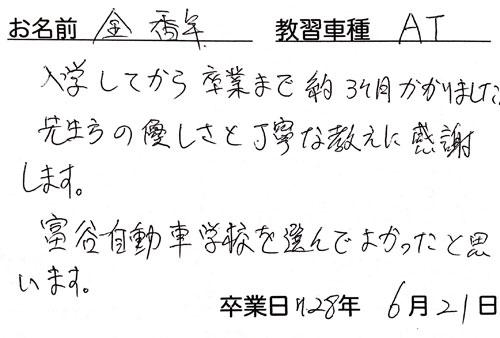 お名前 金 秀年 教習車種 AT
入学してから卒業まで約3ヶ月かかりました。
先生方の優しさと丁寧な教えに感謝
します。
富谷自動車学校を選んでよかったと思
います。
卒業日 H28年 6月21日